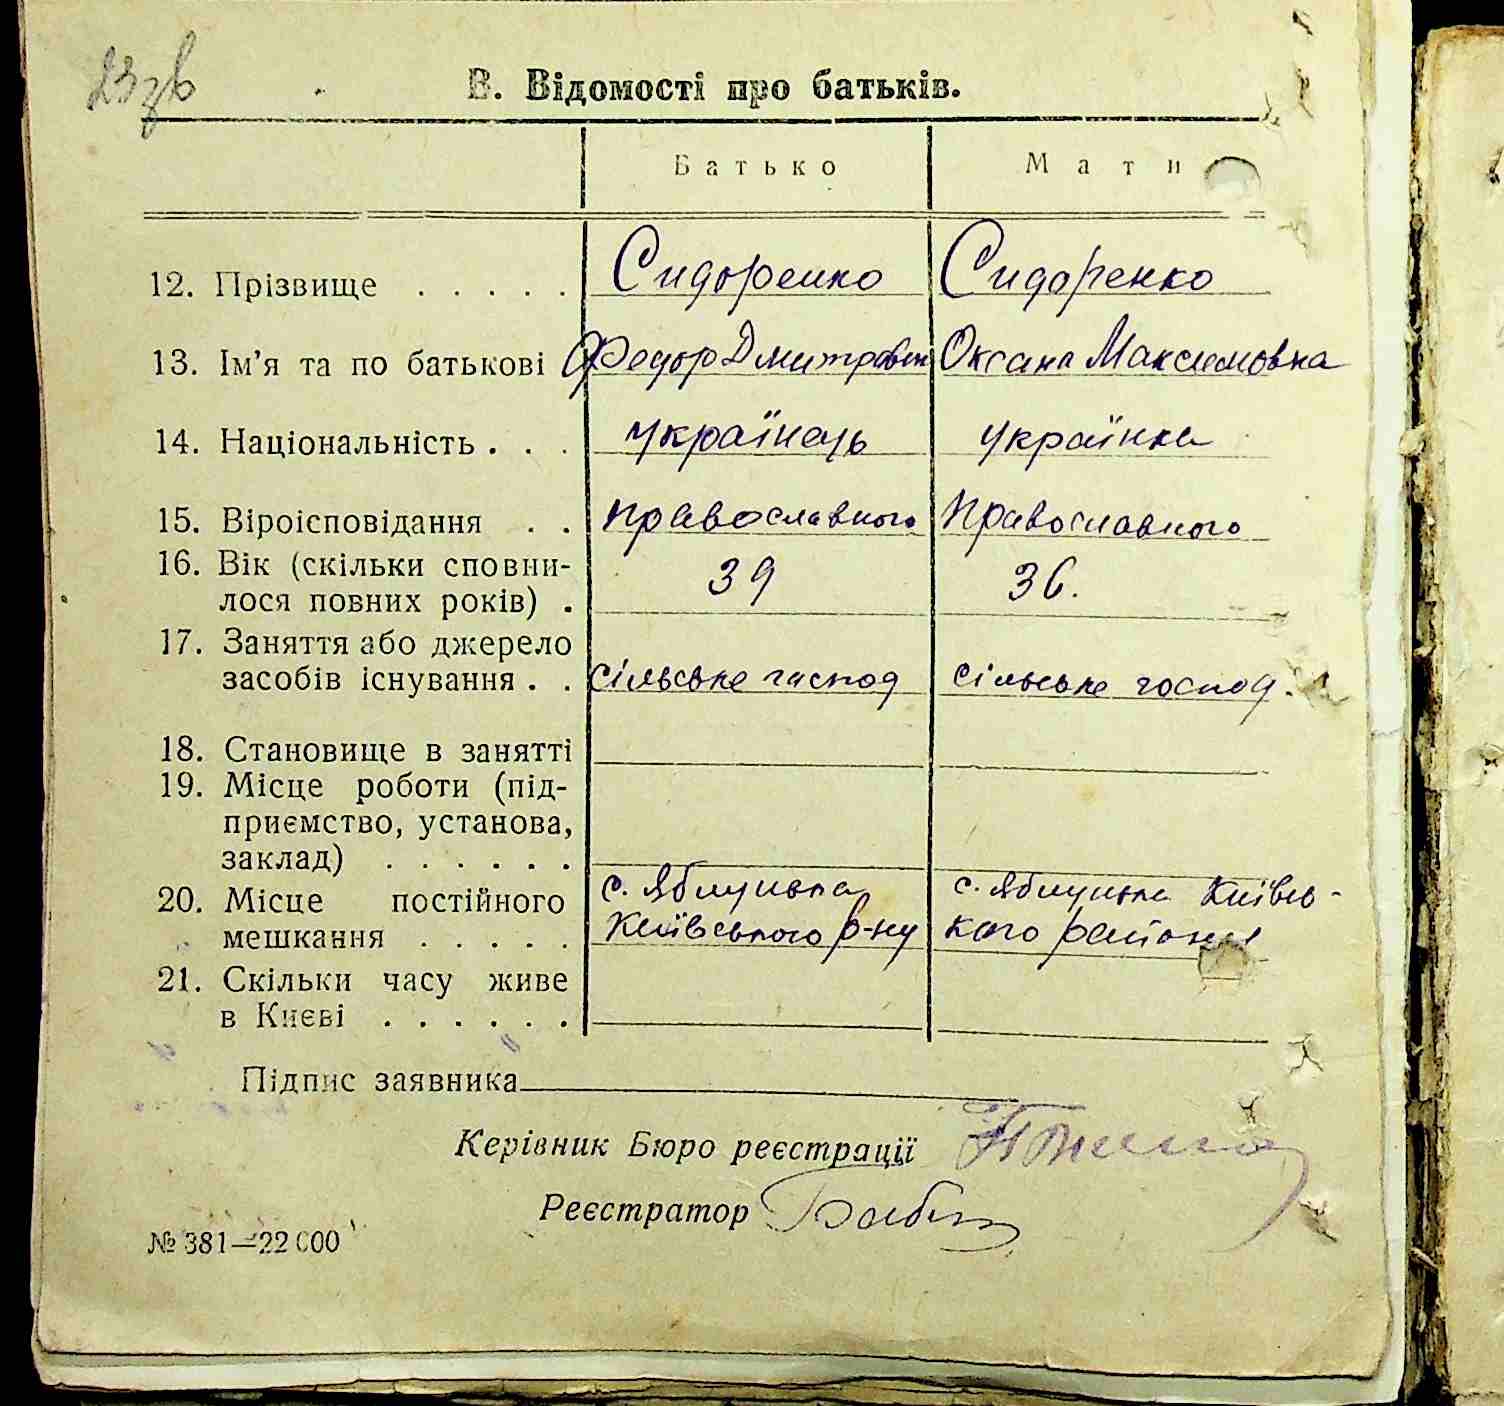 23зв
В. Відомості про батьків.
Батько Мати
12. Прізвище . . . . . Сидоренко Сидоренко
13. Ім'я та по батькові Федор Дмитрович Оксана Максимовна
14. Національність . . . українець українка
15. Віроісповідання . . православного Православного
16. Вік (скільки сповни-
лося повних років) . 39 36.
17. Заняття або джерело
засобів існування . . сільське господ сільське господ.
18. Становище в занятті
19. Місце роботи (під-
приємство, установа,
заклад) . . . . . .
20. Місце постійного с. Яблунька с. Яблунька Київсь-
мешкання . . . . . Київського р-ну кого району
21. Скільки часу живе
в Києві . . . . . .
Підпис заявника
Керівник Бюро реєстрації
Реєстратор
№ 381—22000